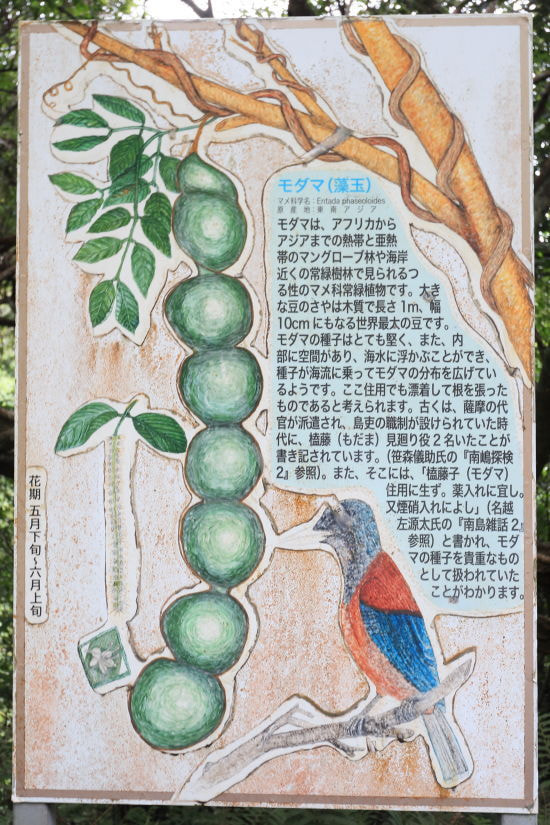 モダマ（藻玉）
マメ科学名：Entada phaseoloides
原産地：東南アジア
モダマは、アフリカから
アジアまでの熱帯と亜熱
帯のマングローブ林や海岸
近くの常緑樹林で見られるつ
る性のマメ科常緑植物です。大き
な豆のさやは木質で長さ1m、幅
10cmにもなる世界最大の豆です。
モダマの種子はとても堅く、また、内
部に空間があり、海水に浮かぶことができ、
種子が海流に乗ってモダマの分布を広げてい
るようです。ここ住用でも漂着して根を張った
ものであると考えられます。古くは、薩摩の代
官が派遣され、島吏の職制が設けられていた時
代に、榼藤（もだま）見廻り役2名いたことが
書き記されています。（笹森儀助氏の『南嶋探検
2』参照）。また、そこには、「榼藤子（モダマ）
住用に生ず。薬入れに宜し。
又煙硝入れによし」（名越
左源太氏の『南島雑話2』
参照）と書かれ、モダ
マの種子を貴重なもの
として扱われていた
ことがわかります。
花期 五月下旬～六月上旬